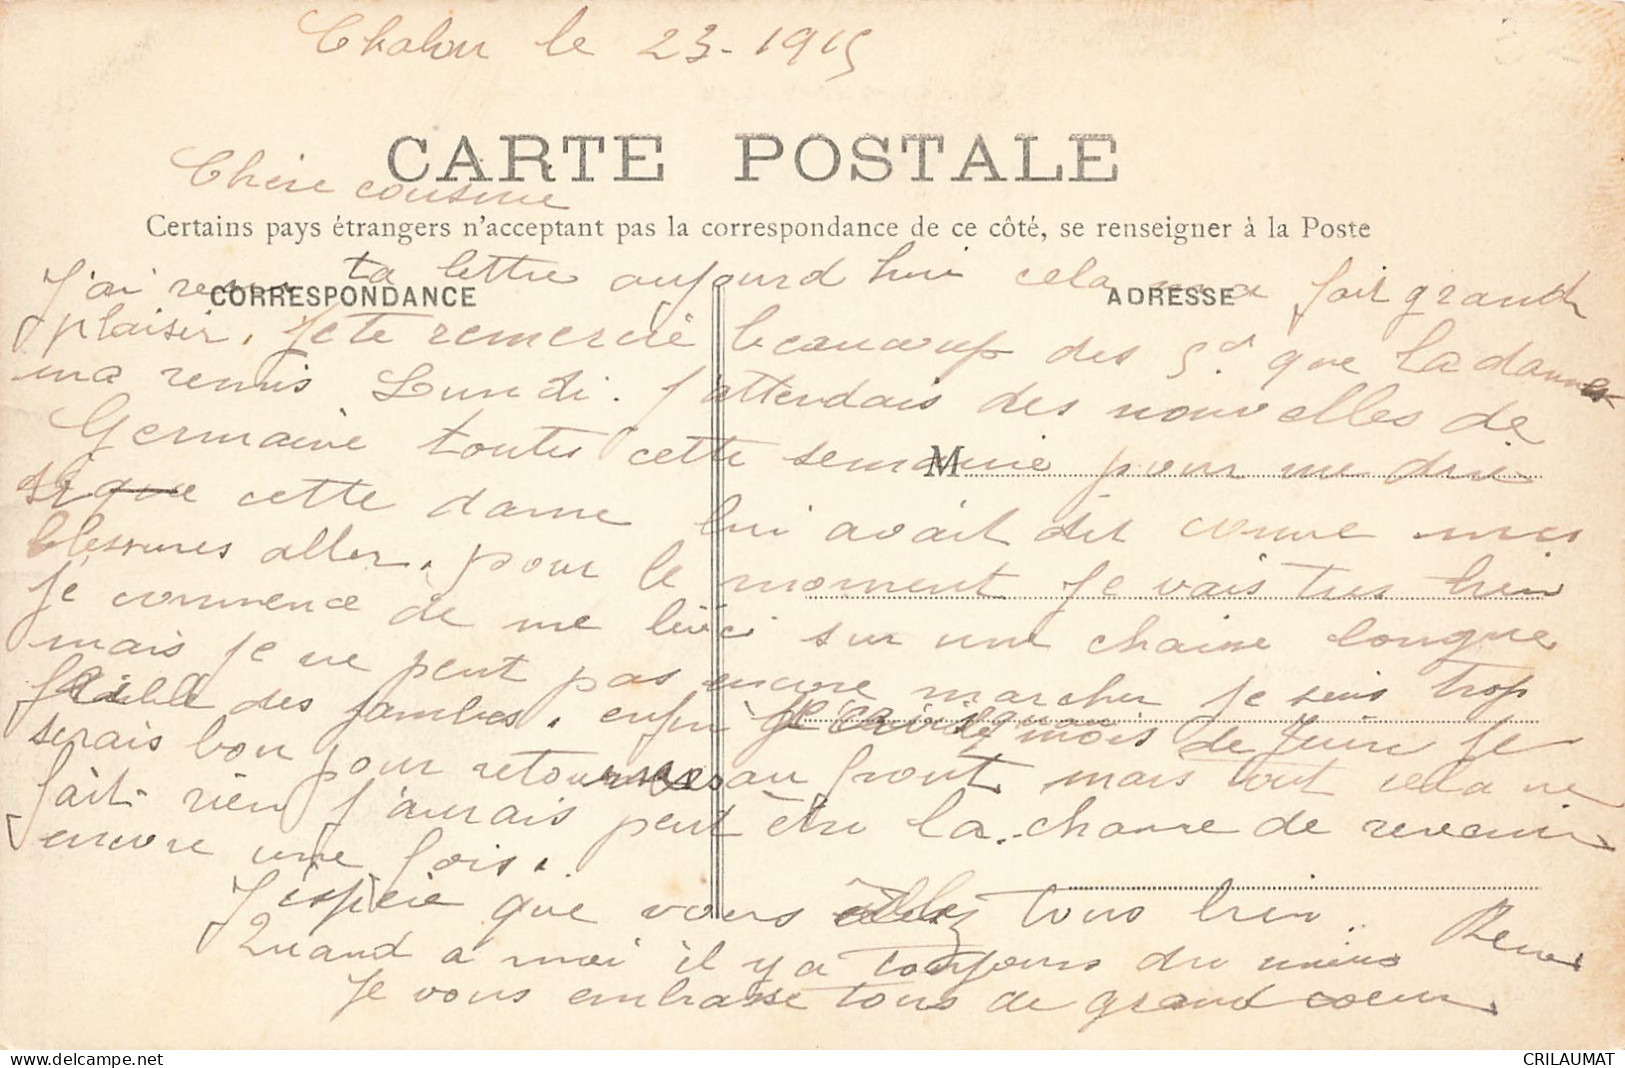 Chalon le 23-1915
CARTE POSTALE
Chère cousine
Certains pays étrangers n'acceptant pas la correspondance de ce côté, se renseigner à la Poste
J'ai resu ta lettre aujourd hui cela ma fait grand
CORRESPONDANCE
ADRESSE
plaisir, Je te remercie beaucoup des 5d. que la dame
ma remis Lundi. J'attendais des nouvelles de
Germaine toutes cette semaine pour me dire
M
si que cette dame lui avait dit comme mes
blessures aller. pour le moment Je vais tres bien
Je commence de me levé sur une chaine longue
mais je ne peut pas encore marcher Je suis trop
faible des jambes. enfin je mois de Juin Je
serais bon pour retourner au front mais tout cela ne
fait rien J'aurais peut être la chance de revenir
encore une fois.
J'espère que vous allez tous bien
Quand a moi il y a toujours du mieux
René
Je vous embrasse tous de grand coeur
delcampe.net
CRILAUMAT